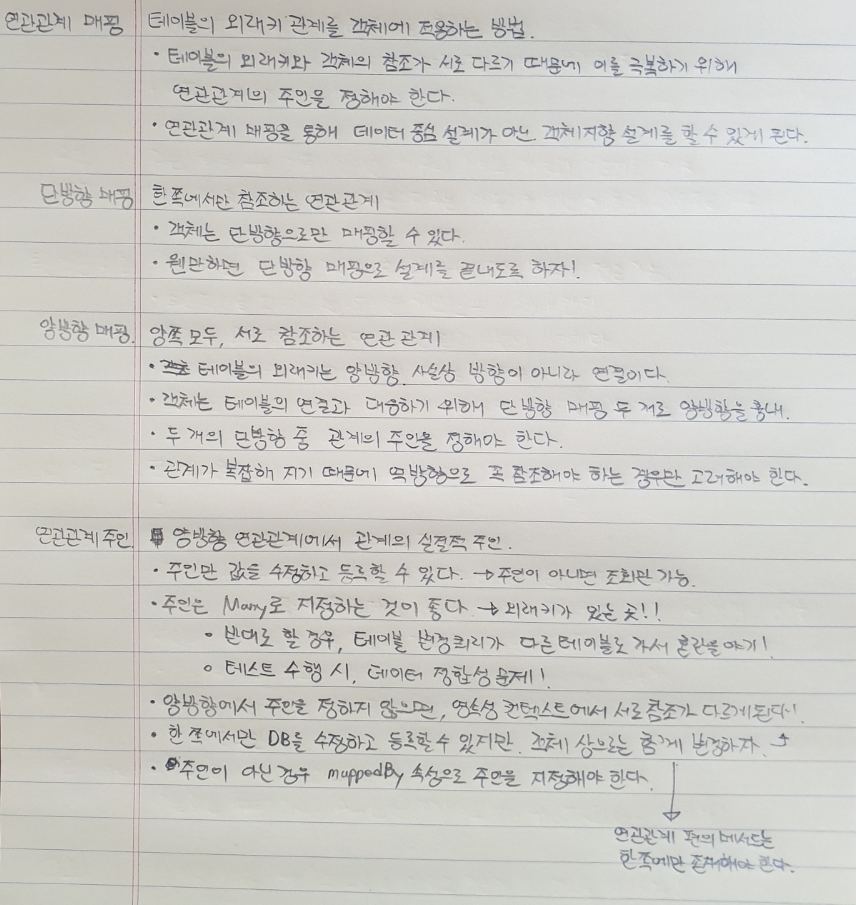 연관관계 매핑 테이블의 외래키 관계를 객체에 적용하는 방법.
· 테이블의 외래키와 객체의 참조가 서로 다르기 때문에 이를 극복하기 위해
연관관계의 주인을 정해야 한다.
· 연관관계 매핑을 통해 데이터 중심 설계가 아닌 객체지향 설계를 할 수 있게 된다.
단방향 매핑 한쪽에서만 참조하는 연관관계
· 객체는 단방향으로만 매핑할 수 있다.
· 웬만하면 단방향 매핑으로 설계를 끝내도록 하자!
양방향 매핑. 양쪽 모두, 서로 참조하는 연관 관계
· 테이블의 외래키는 양방향. 사실상 방향이 아니라 연결이다.
· 객체는 테이블의 연결과 대응하기 위해 단방향 매핑 두 개로 양방향을 흉내.
· 두 개의 단방향 중 관계의 주인을 정해야 한다.
· 관계가 복잡해 지기 때문에 역방향으로 꼭 참조해야 하는 경우만 고려해야 한다.
연관관계 주인. 양방향 연관관계에서 관계의 실질적 주인.
· 주인만 값을 수정하고 등록할 수 있다. → 주인이 아니면 조회만 가능.
· 주인은 Many로 지정하는 것이 좋다. → 외래키가 있는 곳!!
∘ 반대로 할 경우, 테이블 변경쿼리가 다른 테이블로 가서 혼란을 야기!
∘ 테스트 수행 시, 데이터 정합성 문제!
· 양방향에서 주인을 정하지 않으면, 영속성 컨텍스트에서 서로 참조가 다르게 된다!
· 한 쪽에서만 DB를 수정하고 등록할 수 있지만, 객체 상으로는 함께 변경하자.
· 주인이 아닌 경우 mappedBy 속성으로 주인을 지정해야 한다.
연관관계 편의 메서드는
한쪽에만 존재해야 한다.